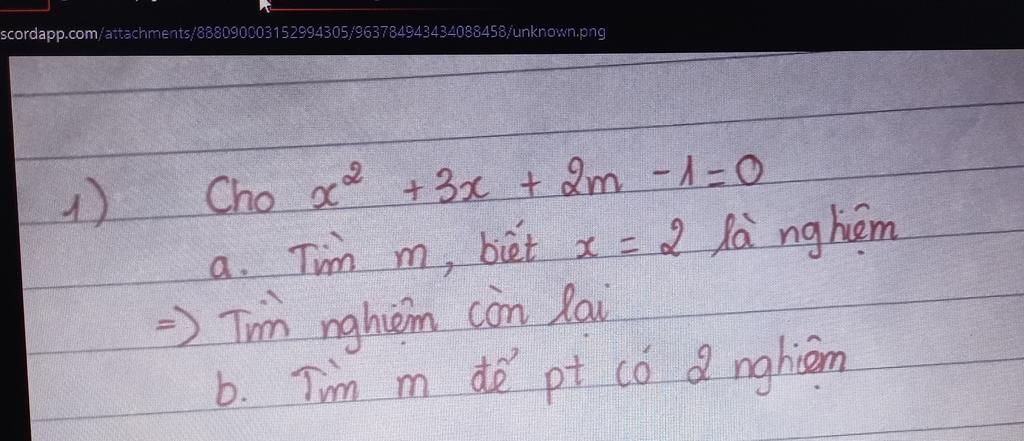 scordapp.com/attachments/888090003152994305/963784943434088458/unknown.png
1) Cho x² + 3x + 2m - 1 = 0
a. Tìm m, biết x = 2 là nghiệm
=> Tìm nghiệm còn lại
b. Tìm m để pt có 2 nghiệm